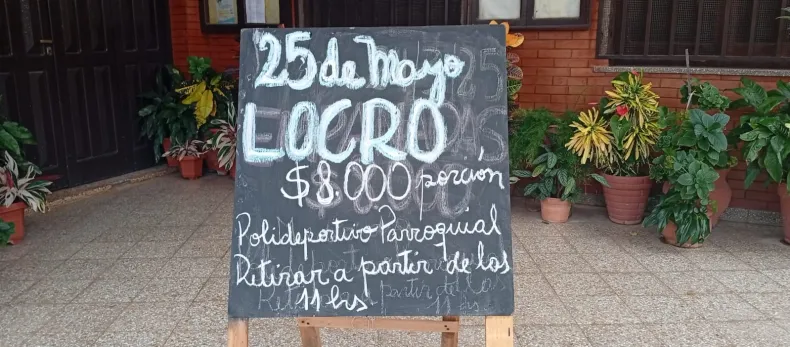 25 de Mayo
LOCRO
$8.000 porción
Polideportivo Parroquial
Retirar a partir de las
11 hrs